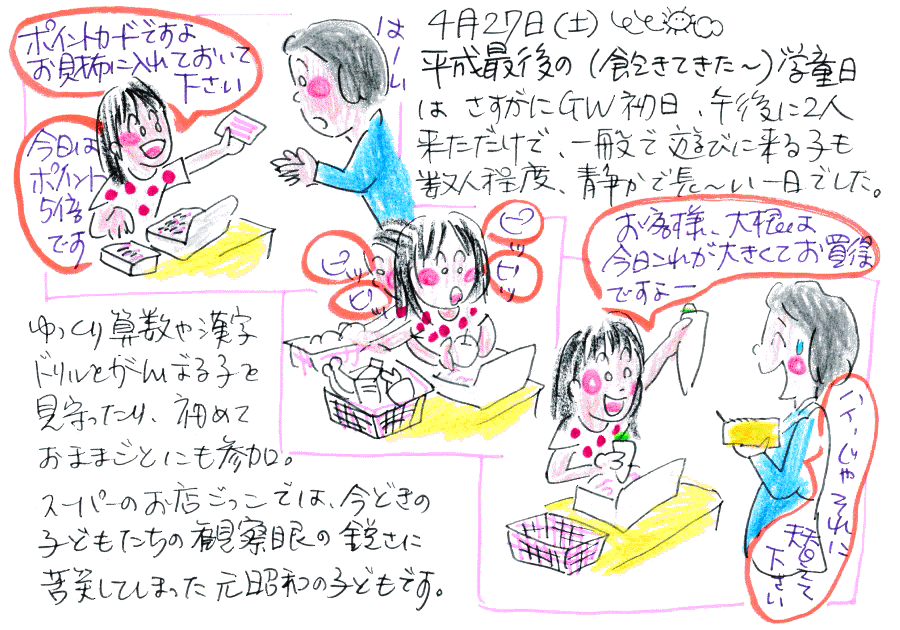 4月27日(土)
平成最後の(飽きてきた〜)学童日
は さすがにGW初日、午後に2人
来ただけで、一般で遊びに来る子も
数人程度、静かで長〜い一日でした。
ポイントカードですよ
お財布に入れておいて
下さい
はーい
今日は
ポイント
5倍
です
ピッ
ピッ
ピッ
ピッ
お客様、大根は
今日これが大きくてお買得
ですよー
ハイ、じゃそれに
替えて
下さい
ゆっくり算数や漢字
ドリルをがんばる子を
見守ったり、初めて
おままごとにも参加。
スーパーのお店ごっこでは、今どきの
子どもたちの観察眼の鋭さに
苦笑してしまった元昭和の子どもです。